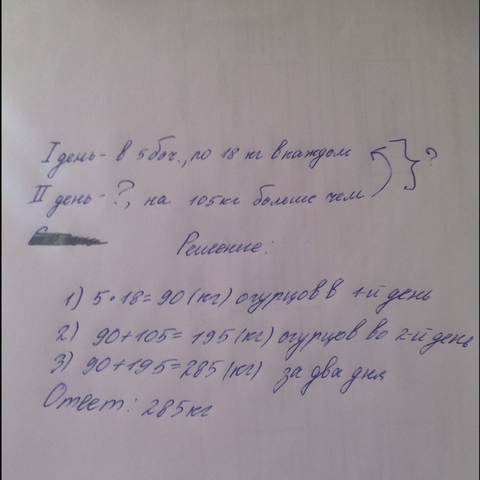 I день - в 5 боч., по 18 кг в каждом
?
II день - ?, на 105 кг больше чем
Решение:
1) 5 · 18 = 90 (кг) огурцов в 1-й день
2) 90 + 105 = 195 (кг) огурцов во 2-й день
3) 90 + 195 = 285 (кг) за два дня
Ответ: 285 кг